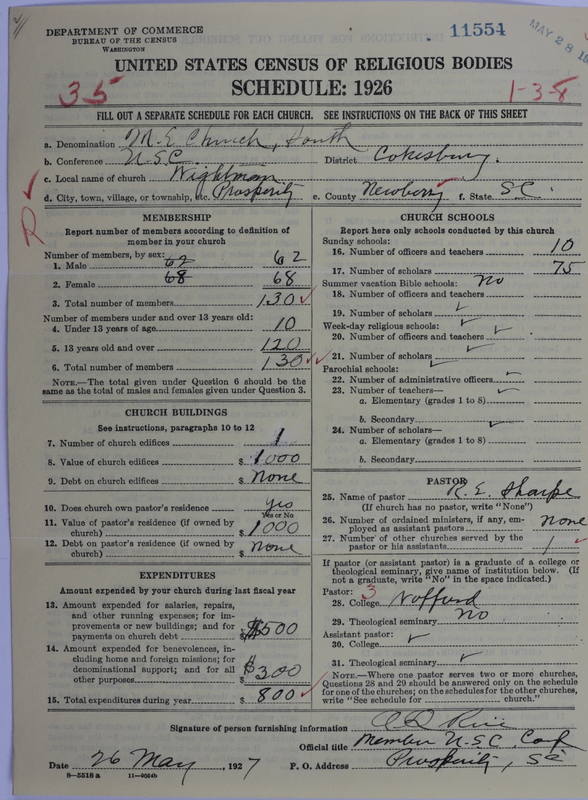 DEPARTMENT OF COMMERCE
BUREAU OF THE CENSUS
WASHINGTON
11554
MAY 28
UNITED STATES CENSUS OF RELIGIOUS BODIES
SCHEDULE: 1926
35
1-3-8
FILL OUT A SEPARATE SCHEDULE FOR EACH CHURCH. SEE INSTRUCTIONS ON THE BACK OF THIS SHEET
a. Denomination M. E. Church, South
b. Conference U.S.C. District Cokesbury.
c. Local name of church Wightman
d. City, town, village, or township, etc. Prosperity e. County Newberry f. State SC.
R
MEMBERSHIP
Report number of members according to definition of member in your church
Number of members, by sex:
1. Male 62 62
2. Female 68 68
3. Total number of members 130
Number of members under and over 13 years old:
4. Under 13 years of age 10
5. 13 years old and over 120
6. Total number of members 130
NOTE.—The total given under Question 6 should be the same as the total of males and females given under Question 3.
CHURCH BUILDINGS
See instructions, paragraphs 10 to 12
7. Number of church edifices 1
8. Value of church edifices $ 1000
9. Debt on church edifices $ None
10. Does church own pastor's residence yes
Yes or No
11. Value of pastor's residence (if owned by church) $ 1000
12. Debt on pastor's residence (if owned by church) $ None
EXPENDITURES
Amount expended by your church during last fiscal year
13. Amount expended for salaries, repairs, and other running expenses; for improvements or new buildings; and for payments on church debt $ $500
14. Amount expended for benevolences, including home and foreign missions; for denominational support; and for all other purposes $ $300
15. Total expenditures during year $ 800
CHURCH SCHOOLS
Report here only schools conducted by this church
Sunday schools:
16. Number of officers and teachers 10
17. Number of scholars 75
Summer vacation Bible schools: No
18. Number of officers and teachers
19. Number of scholars
Week-day religious schools:
20. Number of officers and teachers
21. Number of scholars
Parochial schools:
22. Number of administrative officers
23. Number of teachers—
a. Elementary (grades 1 to 8)
b. Secondary
24. Number of scholars—
a. Elementary (grades 1 to 8)
b. Secondary
PASTOR
25. Name of pastor R. E. Sharpe
(If church has no pastor, write "None")
26. Number of ordained ministers, if any, employed as assistant pastors none
27. Number of other churches served by the pastor or his assistants 1
If pastor (or assistant pastor) is a graduate of a college or theological seminary, give name of institution below. (If not a graduate, write "No" in the space indicated.)
Pastor: 3
28. College Wofford
29. Theological seminary No
Assistant pastor:
30. College
31. Theological seminary
NOTE.—Where one pastor serves two or more churches, Questions 28 and 29 should be answered only on the schedule for one of the churches; on the schedules for the other churches, write "See schedule for church."
Signature of person furnishing information
Official title Member U.S.C. Conf
Date 26 May, 1927 P. O. Address Prosperity, SC
8—5518 a 11—9004b